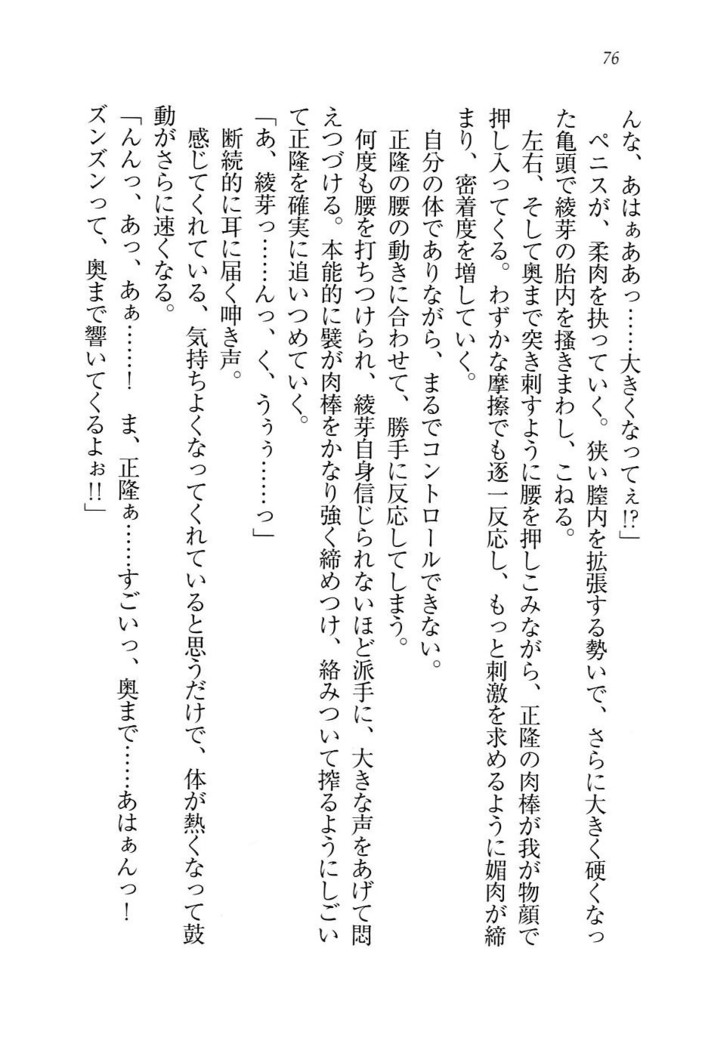 76
んな、あはぁああっ……大きくなってぇ!?」
ペニスが、柔肉を抉っていく。狭い膣内を拡張する勢いで、さらに大きく硬くなっ
た亀頭で綾芽の胎内を掻きまわし、こねる。
左右、そして奥まで突き刺すように腰を押しこみながら、正隆の肉棒が我が物顔で
押し入ってくる。わずかな摩擦でも逐一反応し、もっと刺激を求めるように媚肉が締
まり、密着度を増していく。
自分の体でありながら、まるでコントロールできない。
正隆の腰の動きに合わせて、勝手に反応してしまう。
何度も腰を打ちつけられ、綾芽自身信じられないほど派手に、大きな声をあげて悶
えつづける。本能的に襞が肉棒をかなり強く締めつけ、絡みついて搾るようにしごい
て正隆を確実に追いつめていく。
「あ、綾芽っ……んっ、く、うぅぅ……っ」
断続的に耳に届く呻き声。
感じてくれている、気持ちよくなってくれていると思うだけで、体が熱くなって鼓
動がさらに速くなる。
「んんっ、あっ、あぁ……！　ま、正隆ぁ……すごいっ、奥まで……あはぁんっ！
ズンズンって、奥まで響いてくるよぉ!!」